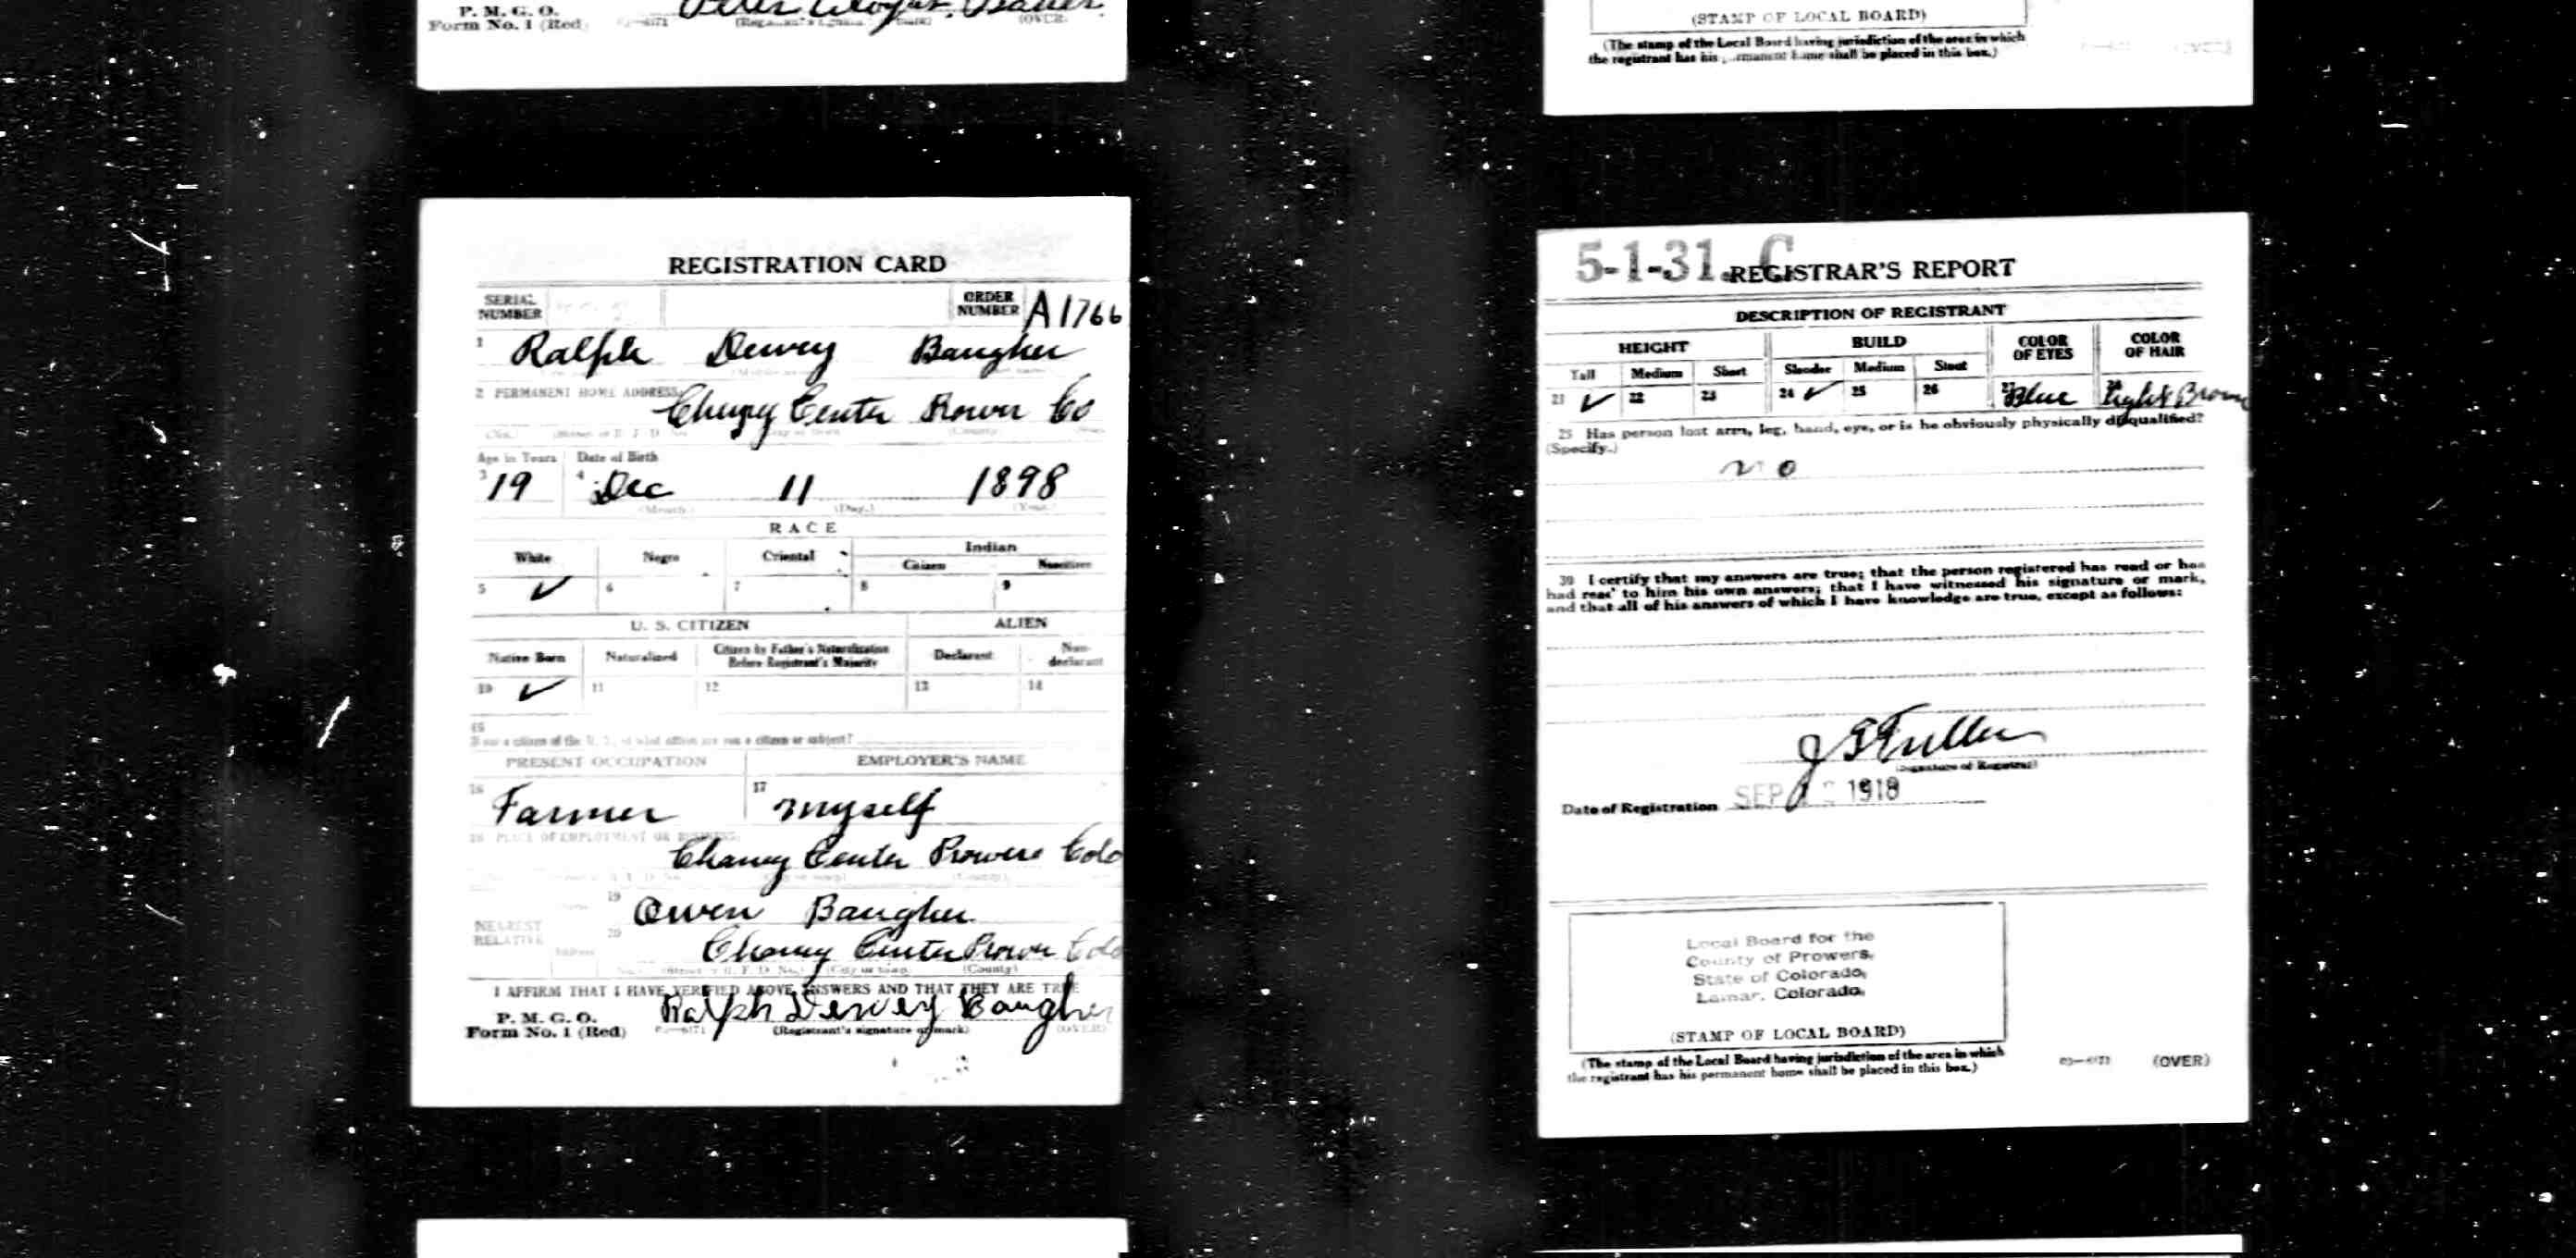 P. M. G. O.
Form No. 1 (Red)
(OVER)
(STAMP OF LOCAL BOARD)
(The stamp of the Local Board having jurisdiction of the area in which
the registrant has his permanent home shall be placed in this box.)
REGISTRATION CARD
SERIAL NUMBER
ORDER NUMBER A1766
1 Ralph Dewey Baugher
2 PERMANENT HOME ADDRESS
Center Co
Age in Years Date of Birth
3 19 4 Dec 11 1898
(Month) (Day.) (Year.)
RACE
White Negro Oriental Indian
Citizen Noncitizen
5 ✓ 6 7 8 9
U. S. CITIZEN ALIEN
Native Born Naturalized Citizen by Father's Naturalization Before Registrant's Majority Declarant Non-declarant
10 ✓ 11 12 13 14
15
If not a citizen of the U. S., of what nation are you a citizen or subject?
PRESENT OCCUPATION EMPLOYER'S NAME
16 Farmer 17 myself
18 PLACE OF EMPLOYMENT OR BUSINESS:
Center Prowers Colo
19 Owen Baugher
NEAREST RELATIVE
Address 20 Center Colo
(City or town) (County)
I AFFIRM THAT I HAVE VERIFIED ABOVE ANSWERS AND THAT THEY ARE TRUE
P. M. G. O.
Form No. 1 (Red) Ralph Dewey Baugher
(Registrant's signature or mark) (OVER)
5-1-31. C
REGISTRAR'S REPORT
DESCRIPTION OF REGISTRANT
HEIGHT BUILD COLOR OF EYES COLOR OF HAIR
Tall Medium Short Slender Medium Stout
21 ✓ 22 23 24 ✓ 25 26 27 Blue 28 Light Brown
29 Has person lost arm, leg, hand, eye, or is he obviously physically disqualified?
(Specify.)
no
30 I certify that my answers are true; that the person registered has read or has
had read to him his own answers; that I have witnessed his signature or mark,
and that all of his answers of which I have knowledge are true, except as follows:
Fuller
(Signature of Registrar)
Date of Registration SEP 1918
Local Board for the
County of Prowers,
State of Colorado,
Lamar, Colorado,
(STAMP OF LOCAL BOARD)
(The stamp of the Local Board having jurisdiction of the area in which
the registrant has his permanent home shall be placed in this box.)
(OVER)